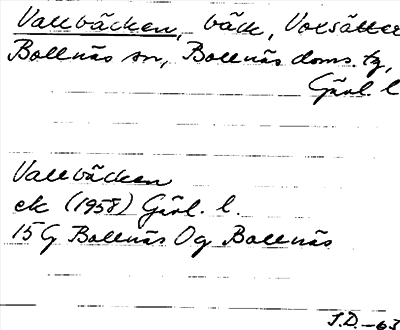 Vallbäcken, bäck, Volsätter
Bollnäs sn, Bollnäs doms. tg,
Gävl. l
Vallbäcken
ek (1958) Gävl. l.
15 G Bollnäs Og Bollnäs
J.D.-63